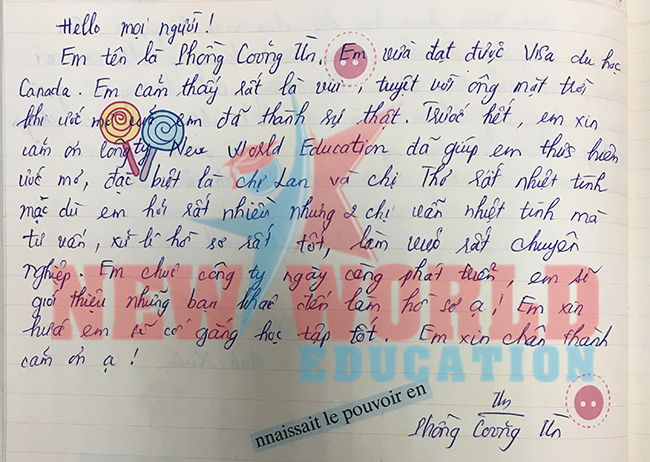 Hello mọi người!
Em tên là Phồng Coỏng Ửn. Em vừa đạt được Visa du học
Canada. Em cảm thấy rất là vui, tuyệt vời ông mặt trời
khi ước mơ em đã thành sự thật. Trước hết, em xin
cảm ơn công ty New World Education đã giúp em thực hiện
ước mơ, đặc biệt là chị Lan và chị Thơ rất nhiệt tình
mặc dù em hỏi rất nhiều nhưng 2 chị vẫn nhiệt tình mà
tư vấn, xử lí hồ sơ rất tốt, làm việc rất chuyên
nghiệp. Em chúc công ty ngày càng phát triển, em sẽ
giới thiệu những bạn khác đến làm hồ sơ ạ! Em xin
hứa em sẽ cố gắng học tập tốt. Em xin chân thành
cảm ơn ạ!
NEW WORLD
EDUCATION
nnaissait le pouvoir en
Phồng Coỏng Ửn